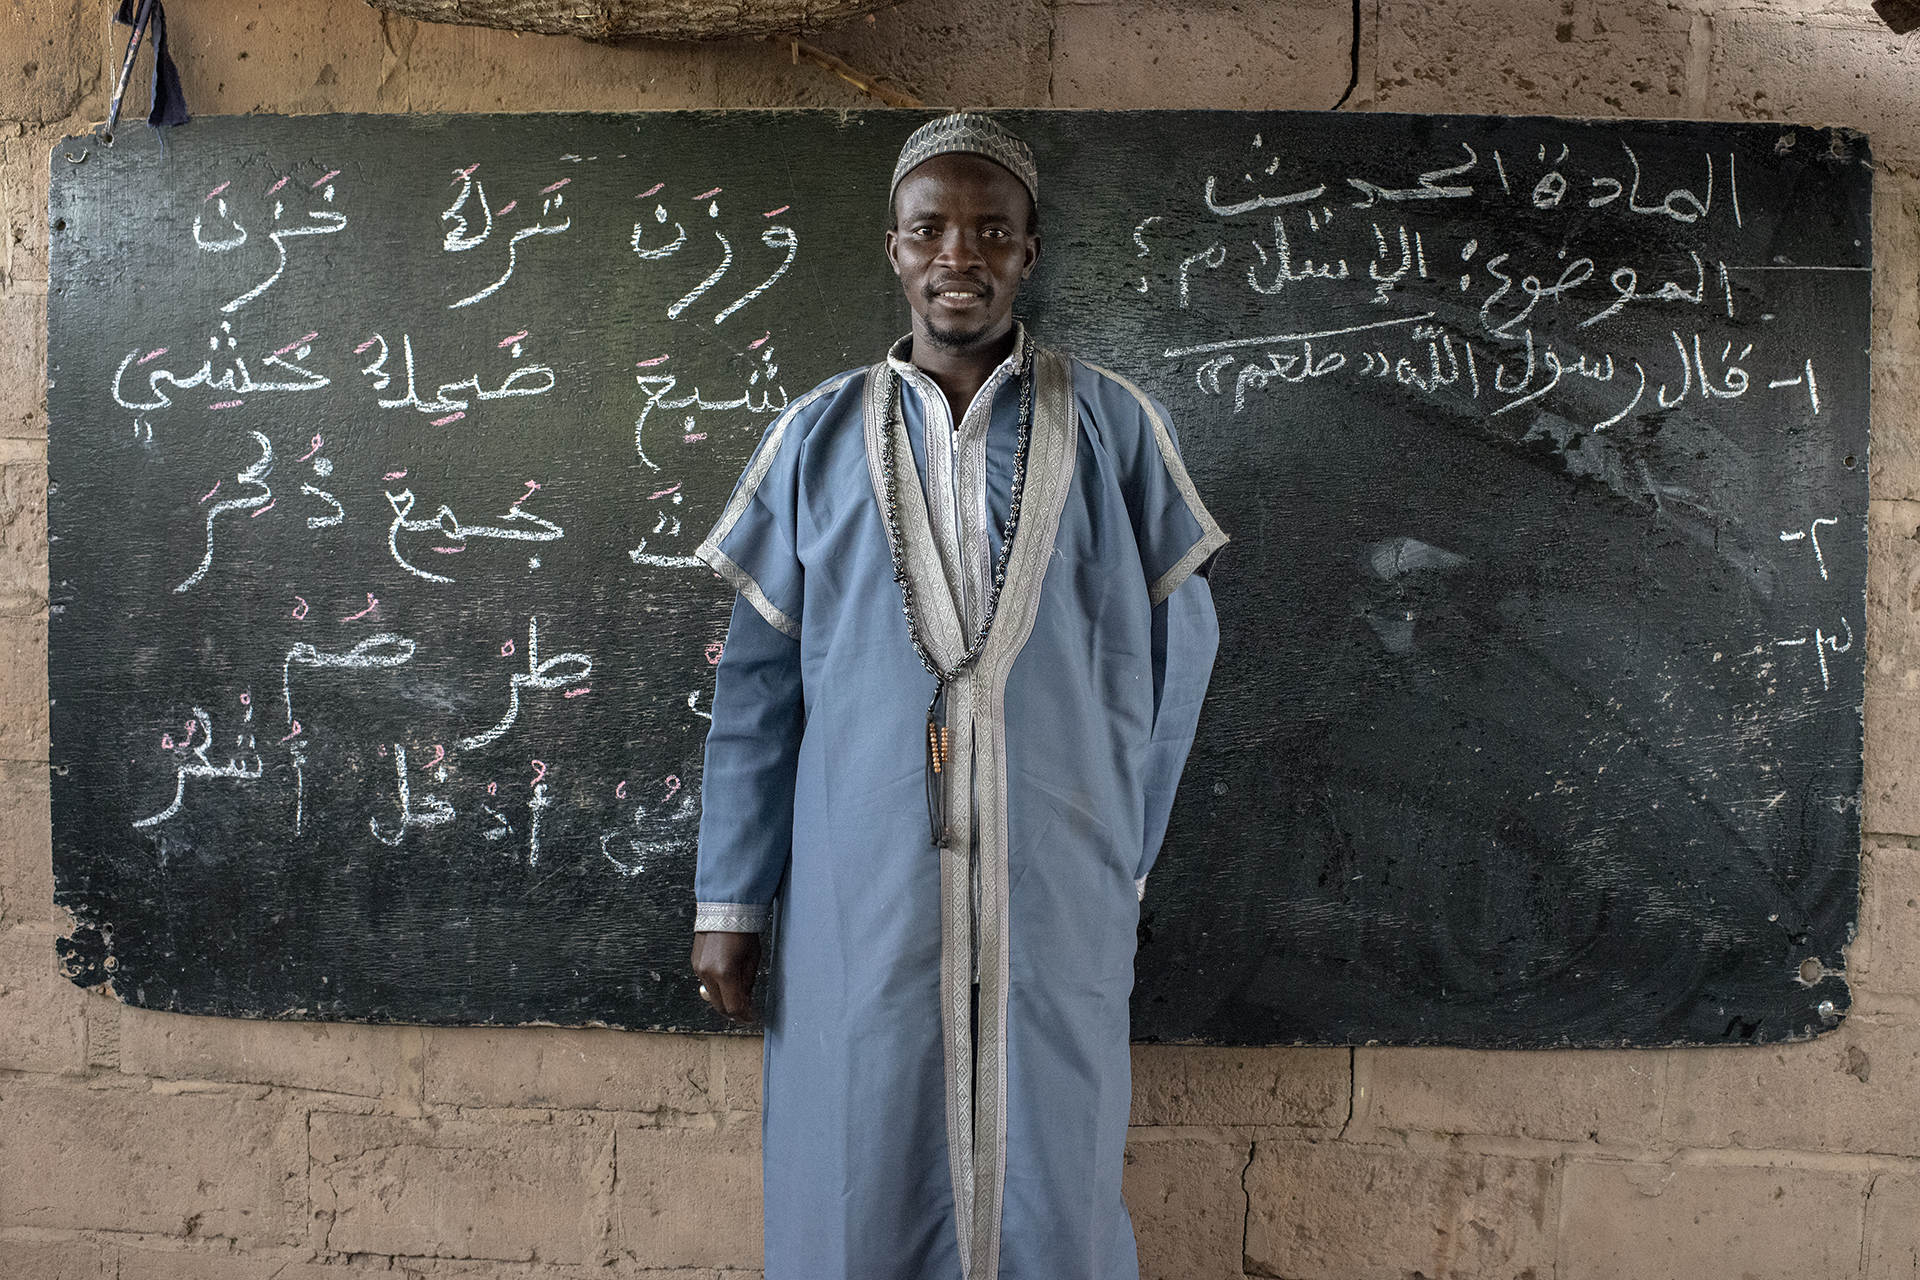 المادة الحديث
الموضوع: الإسلام؟
١- قال رسول الله «صلعم»
٢-
٣-
وَزَنَ تَرَكَ خَزَنَ
شَبِعَ ضَحِكَ خَشِيَ
جُمِعَ ذُكِرَ
طِرْ صُمْ
أُدْخُلْ أُشْكُرْ